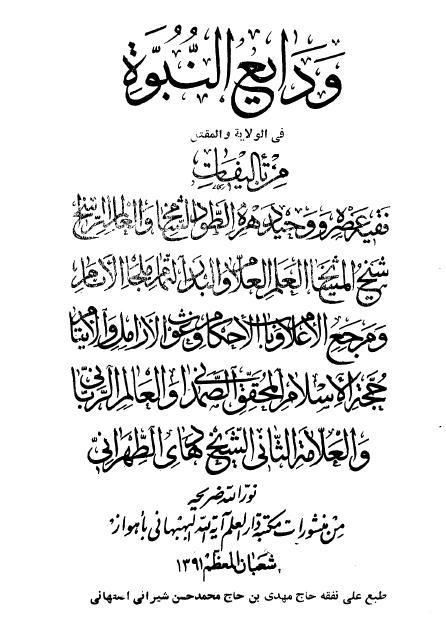 وَدَایِعُ النُّبُوَّةِ
فی الولایة والمقتل
مِنْ تَألیفاتِ
فقیه عصره ووحید دهره الطّود الشّامخ والعالم الرّاسخ
شیخ المشایخ العلم العلّام والبدر التّمام ملجأ الأنام
ومرجع الأعلام وباب الأحکام وغوث الأرامل والأیتام
حجّة الإسلام المحقّق الصّمدانیّ والعالم الرّبّانیّ
والعلّامة الثّانی الشّیخ هادی الطّهرانیّ
نوّر الله ضریحه
من منشورات مکتبة دار العلم آیة الله البهبهانی باهواز
شعبان المعظّم ۱۳۹۱
طبع علی نفقه حاج مهدی بن حاج محمدحسن شیرانی اصتهانی